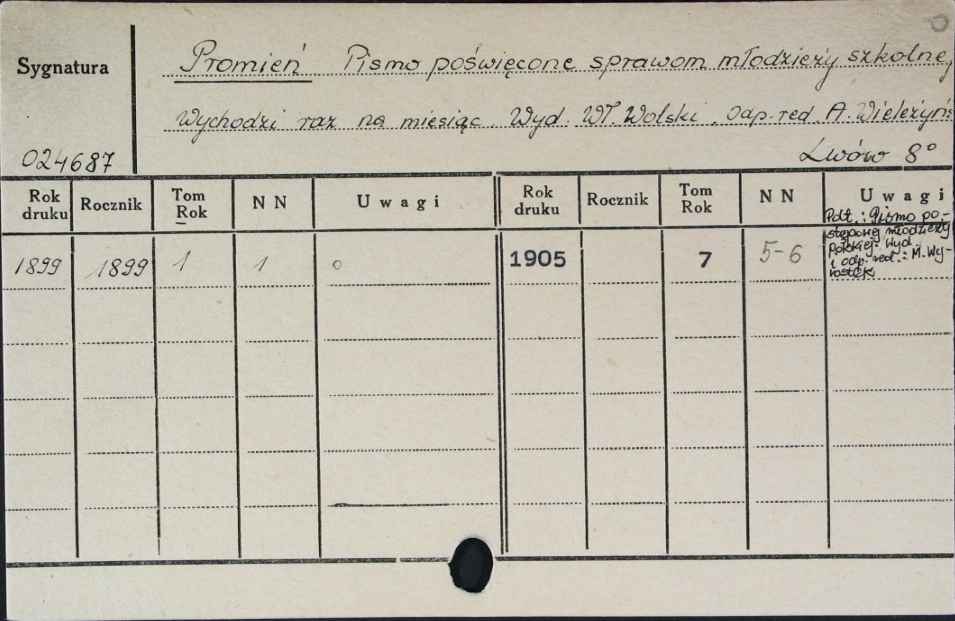 Sygnatura
Promień Pismo poświęcone sprawom młodzieży szkolnej
Wychodzi raz na miesiąc. Wyd. Wł. Wolski, odp. red. A. Wieleżyńs
024687
Lwów 8°
Rok druku Rocznik Tom Rok N N Uwagi Rok druku Rocznik Tom Rok N N Uwagi
1899 1899 1 1 o 1905 7 5-6
Podt.: Pismo po-
stępowej młodzieży
polskiej. Wyd.
i odp. red.: M. Wy-
rostek